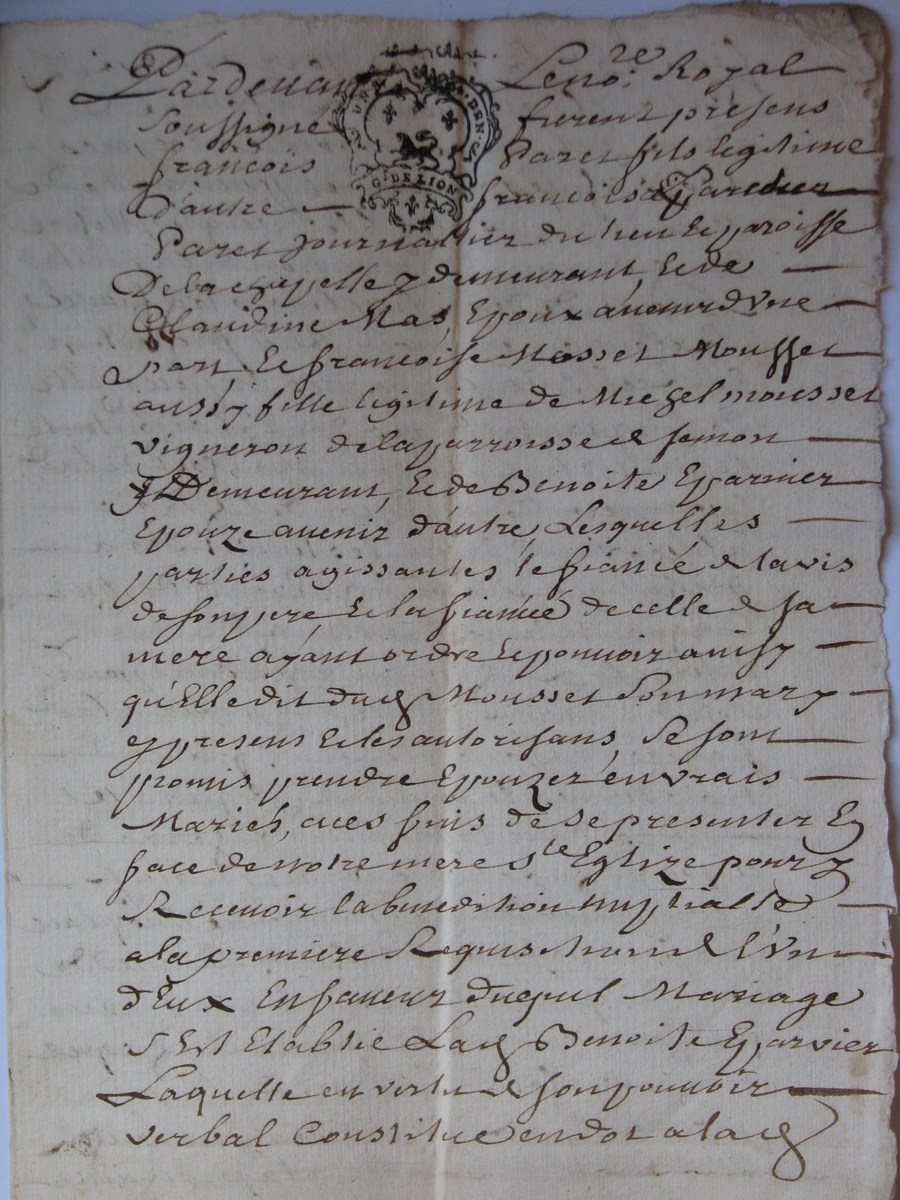 Pardevant Le no.re Royal
Soussigné furent presens
françois Paret fils legitime
d'autre françois
Paret journallier du lieu & paroisse
De la chapelle y demeurant, & de
Claudine Mas, Epoux avenir d'vne
part & françoise Mosset Mousset
aussy fille legitime de Michel mousset
vigneron de la parroisse de semon
y Demeurant, & de Benoite Eparvier
Epouze avenir d'autre, Lesquelles
parties agissantes le fiancé de l'avis
de son pere & la fiancée de celle de sa
mere ayant ordre & pouvoir ainsy
qu'Elle dit dud Mousset son mary
cy presens & les autorisans, Se sont
promis prendre Epouzer en vrais
Mariés, a ces fins de se presenter En
face de notre mere s.te Eglize pour y
Recevoir la benediction nuptialle
a la premiere Requisition de l'Vn
d'Eux En faveur duquel Mariage
s'Est Etablie Lad Benoite Eparvier
Laquelle en vertu de son pouvoir
verbal Constitue en dot a lad
G. DE LION